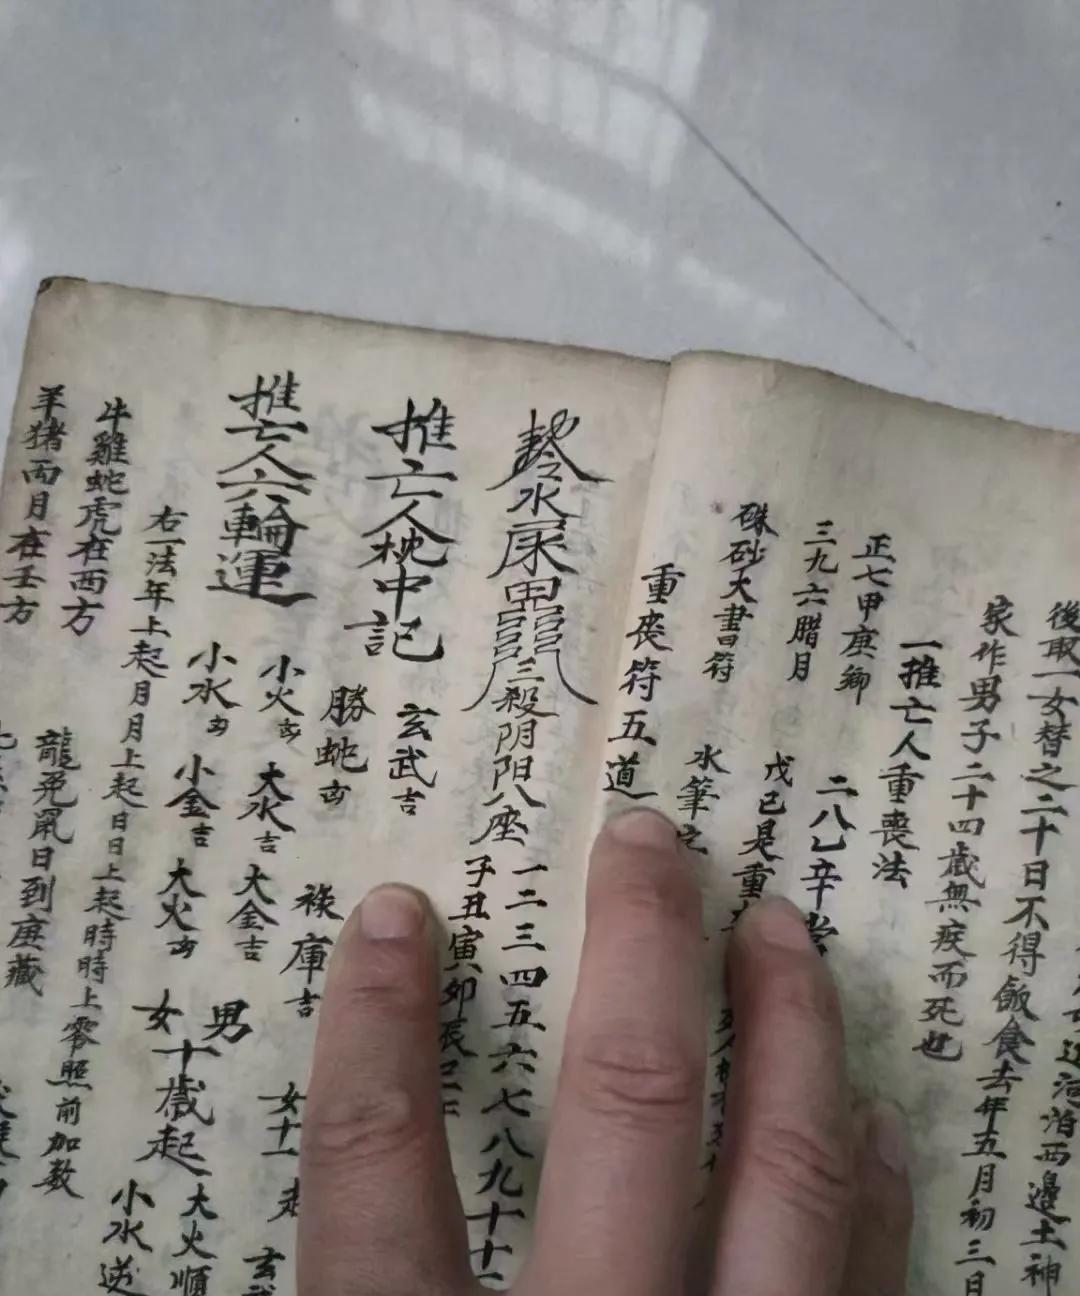 後取一女替之二十日不得飯食去年五月初三日
家作男子二十四歲無疾而死也
一推亡人重喪法
正七甲庚卿
二八乙辛當
三九六腊月
戊己是重
硃砂大書符
水筆之
重丧符五道
水尿
三殺阴阳八座
一二三四五六七八九十十二
子丑寅卯辰巳
推亡人枕中記
玄武吉
勝蛇
庫吉
推亡人六輪運
小火
大水吉
大金吉
男
女十
小水
小金吉
大火
女十歲起
大火順
小水逆
右一法年上起月月上起日日上起時時上零照前加数
牛雞蛇虎在西方
龍兎鼠日到庫藏
羊猪两月在壬方